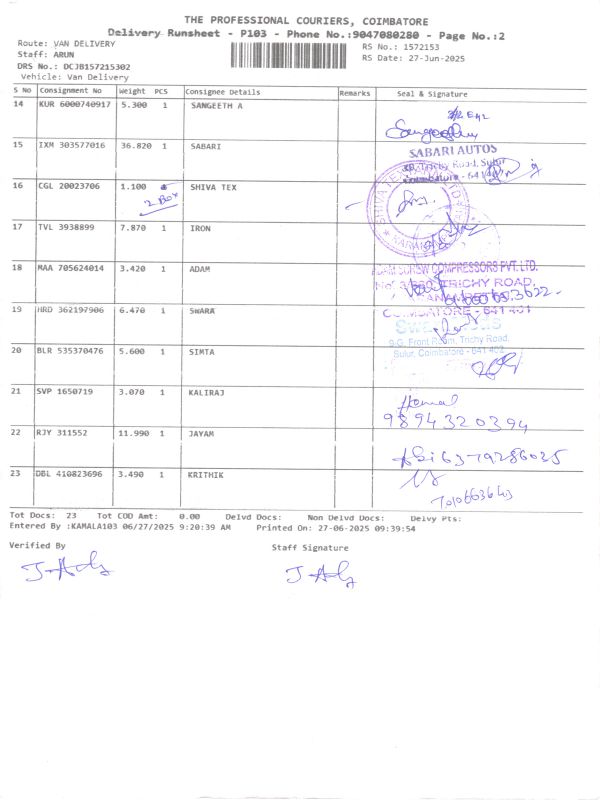 THE PROFESSIONAL COURIERS, COIMBATORE
Delivery Runsheet - P103 - Phone No.:9047080280 - Page No.:2
Route: VAN DELIVERY
RS No.: 1572153
Staff: ARUN
RS Date: 27-Jun-2025
DRS No.: DCJB157215302
Vehicle: Van Delivery
S No Consignment No Weight PCS Consignee Details Remarks Seal & Signature
14 KUR 6000740917 5.300 1 SANGEETH A
15 IXM 303577016 36.820 1 SABARI
SABARI AUTOS
Trichy Road, Sulur
Coimbatore - 641 402
16 CGL 20023706 1.100 SHIVA TEX
2 Box
17 TVL 3938899 7.870 1 IRON
18 MAA 705624014 3.420 1 ADAM
ADAM SCREW COMPRESSORS PVT. LTD.
TRICHY ROAD,
COIMBATORE - 641 401
19 HRD 362197906 6.470 1 SWARA
9-G, Front Room, Trichy Road,
Sulur, Coimbatore - 641 402
20 BLR 535370476 5.600 1 SIMTA
21 SVP 1650719 3.070 1 KALIRAJ
9894320394
22 RJY 311552 11.990 1 JAYAM
6379286035
23 DBL 410823696 3.490 1 KRITHIK
Tot Docs: 23 Tot COD Amt: 0.00 Delvd Docs: Non Delvd Docs: Delvy Pts:
Entered By :KAMALA103 06/27/2025 9:20:39 AM Printed On: 27-06-2025 09:39:54
Verified By
Staff Signature